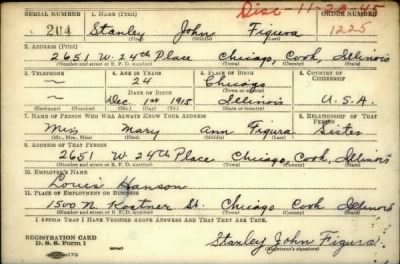 Disc-11-20-45
SERIAL NUMBER 1. NAME (Print) ORDER NUMBER
Stanley John Figura 1225
(First) (Middle) (Last)
2. ADDRESS (Print)
2651 W. 24th Place Chicago, Cook, Illinois
(Number and street or R. F. D. number) (Town) (County) (State)
3. TELEPHONE 4. AGE IN YEARS 5. PLACE OF BIRTH 6. COUNTRY OF CITIZENSHIP
~ 24 Chicago
DATE OF BIRTH (Town or county)
~ Dec. 1st 1915 Illinois U.S.A.
(Exchange) (Number) (Mo.) (Day) (Yr.) (State or country)
7. NAME OF PERSON WHO WILL ALWAYS KNOW YOUR ADDRESS 8. RELATIONSHIP OF THAT PERSON
Miss Mary Ann Figura Sister
(Mr., Mrs., Miss) (First) (Middle) (Last)
9. ADDRESS OF THAT PERSON
2651 W. 24th Place Chicago, Cook, Illinois
(Number and street or R. F. D. number) (Town) (County) (State)
10. EMPLOYER'S NAME
Louis Hanson
11. PLACE OF EMPLOYMENT OR BUSINESS
1500 N. Kostner St. Chicago Cook Illinois
(Number and street or R. F. D. number) (Town) (County) (State)
I AFFIRM THAT I HAVE VERIFIED ABOVE ANSWERS AND THAT THEY ARE TRUE.
REGISTRATION CARD
D. S. S. Form 1
Stanley John Figura
(Registrant's signature)